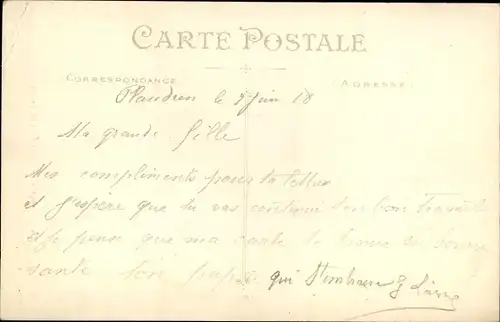 CARTE POSTALE
CORRESPONDANCE
ADRESSE
Plaudren le 9 juin 18
Ma grande fille
Mes compliments pour ta lettre
et j'espère que tu vas continui ton bon travail
et je pense que ma carte te trouve en bonne
santé ton papa qui